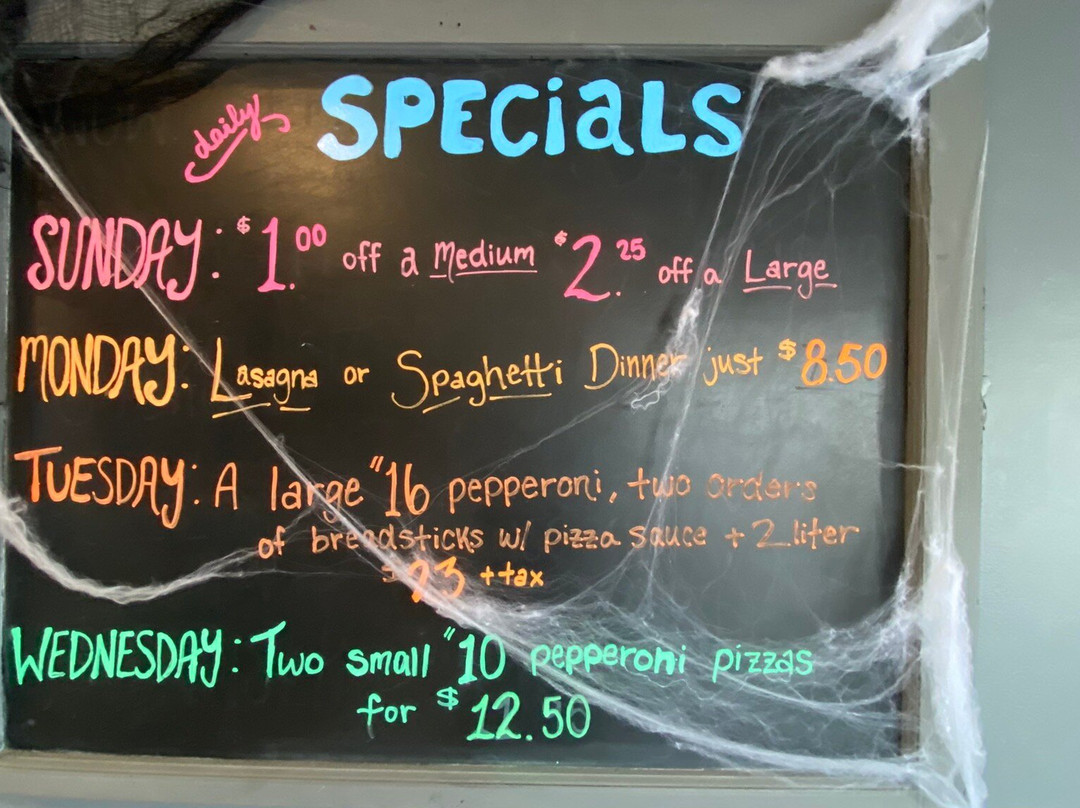 daily SPECiALS
SUNDAY: $1.00 off a Medium $2.25 off a Large
MONDAY: Lasagna or Spaghetti Dinner just $8.50
TUESDAY: A large "16 pepperoni, two orders
of breadsticks w/ pizza sauce + 2 liter
$23 + tax
WEDNESDAY: Two small "10 pepperoni pizzas
for $12.50